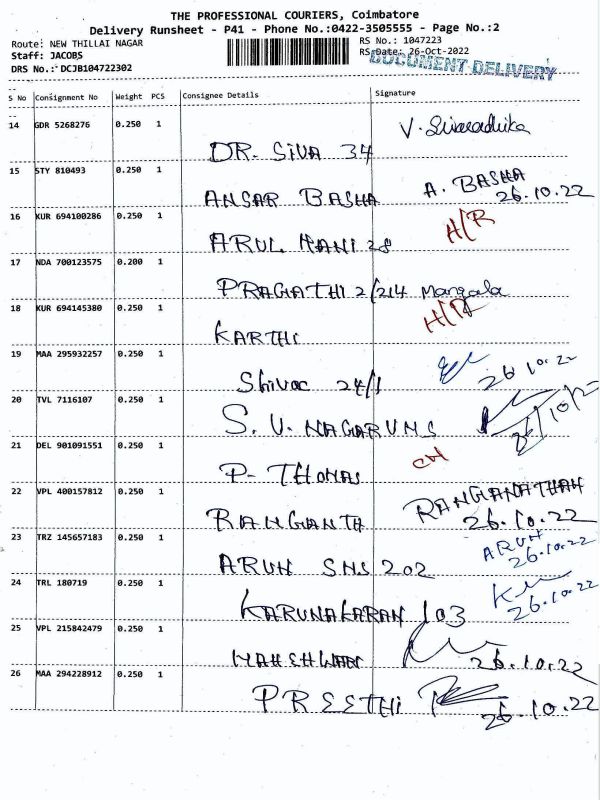 THE PROFESSIONAL COURIERS, Coimbatore
Delivery Runsheet - P41 - Phone No.:0422-3505555 - Page No.:2
Route: NEW THILLAI NAGAR RS No.: 1047223
Staff: JACOBS RS Date: 26-Oct-2022
DOCUMENT DELIVERY
DRS No.: DCJB104722302
S No Consignment No Weight PCS Consignee Details Signature
14 GDR 5268276 0.250 1
DR. SIVA 34
15 STY 810493 0.250 1 A. BASHA
ANSAR BASHA 26.10.22
16 KUR 694100286 0.250 1 H/R
ARUL MANI 28
17 NDA 700123575 0.200 1
PRAGATHI 2/214 Mangala
18 KUR 694145380 0.250 1
KARTHI
19 MAA 295932257 0.250 1 26 10.22
24/1
20 TVL 7116107 0.250 1
S. V.
21 DEL 901091551 0.250 1
P- THOMAS
22 VPL 400157812 0.250 1 RANGANATHAN
RANGANTH 26.10.22
23 TRZ 145657183 0.250 1 ARUN
ARUN SNS 202 26.10.22
24 TRL 180719 0.250 1 26.10.22
KARUNAKARAN 103
25 VPL 215842479 0.250 1
MAHESHWARI 26.10.22
26 MAA 294228912 0.250 1
PREETHI 26.10.22